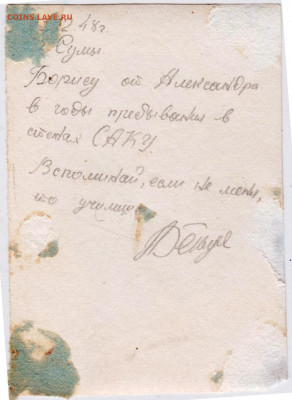 COINS.LAV.RU
2.48г.
Сумы.
Борису от Александра
в годы пребывания в
стенах САКУ.
Вспоминай, если не меня,
то училище